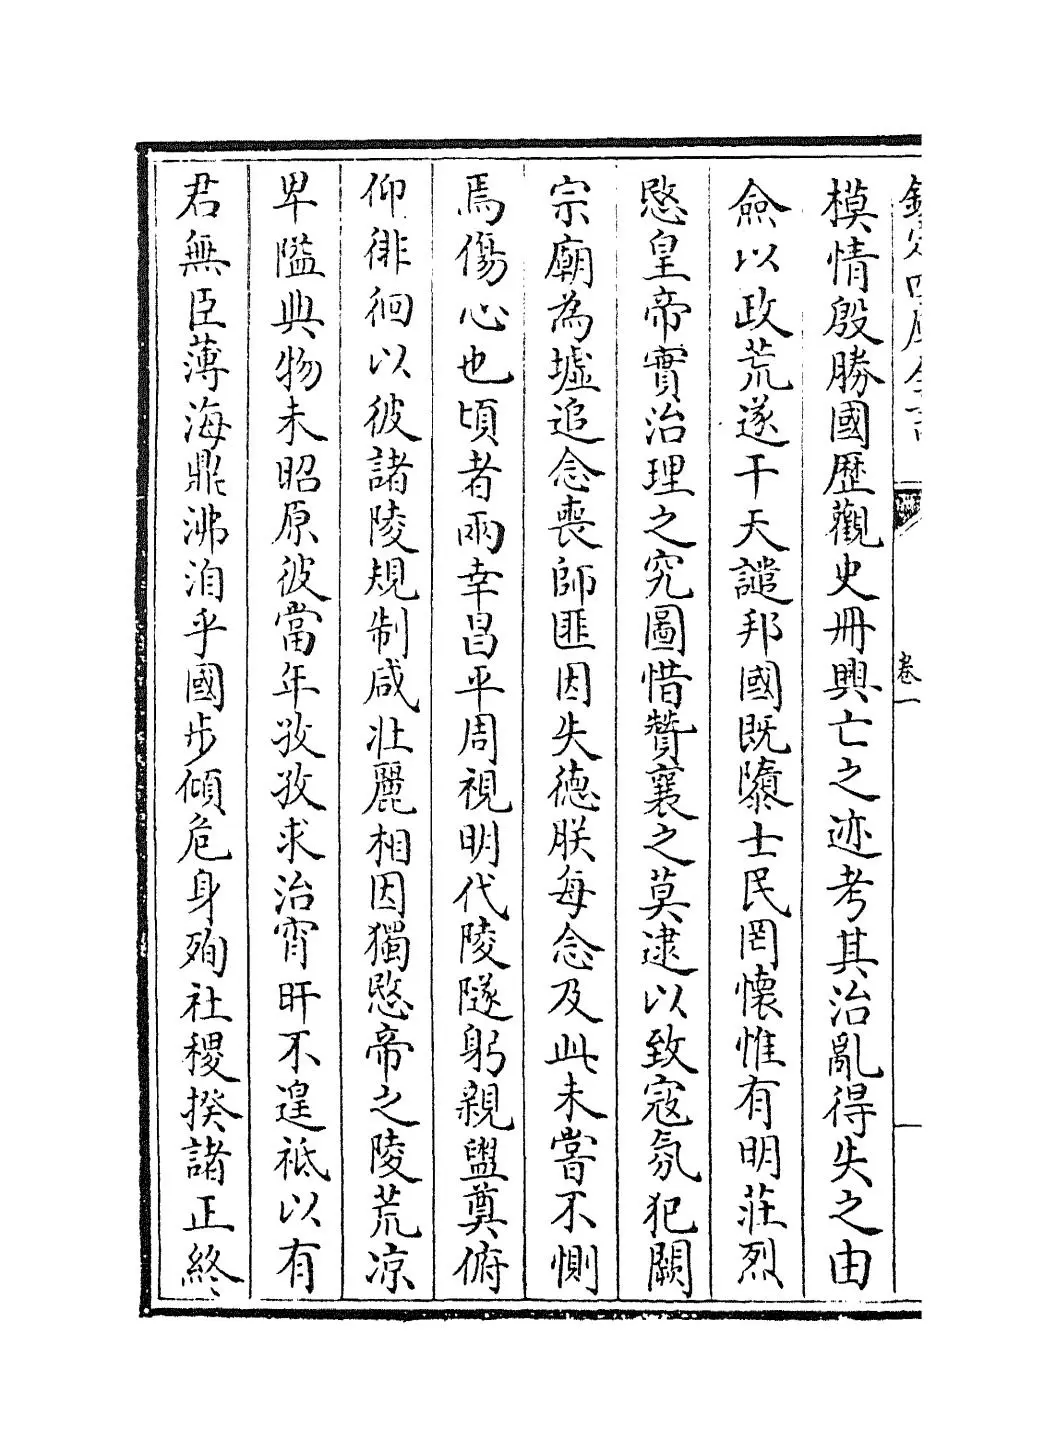 欽定四庫全書
卷一
模情殷勝國歷觀史冊興亡之迹考其治亂得失之由
僉以政荒遂干天譴邦國既隳士民罔懷惟有明莊烈
愍皇帝實治理之究圖惜贊襄之莫逮以致寇氛犯闕
宗廟為墟追念喪師匪因失德朕每念及此未嘗不惻
焉傷心也頃者兩幸昌平周視明代陵隧躬親盥奠俯
仰徘徊以彼諸陵規制咸壯麗相因獨愍帝之陵荒涼
卑隘典物未昭原彼當年孜孜求治宵旰不遑祗以有
君無臣薄海鼎沸洎乎國步傾危身殉社稷揆諸正終